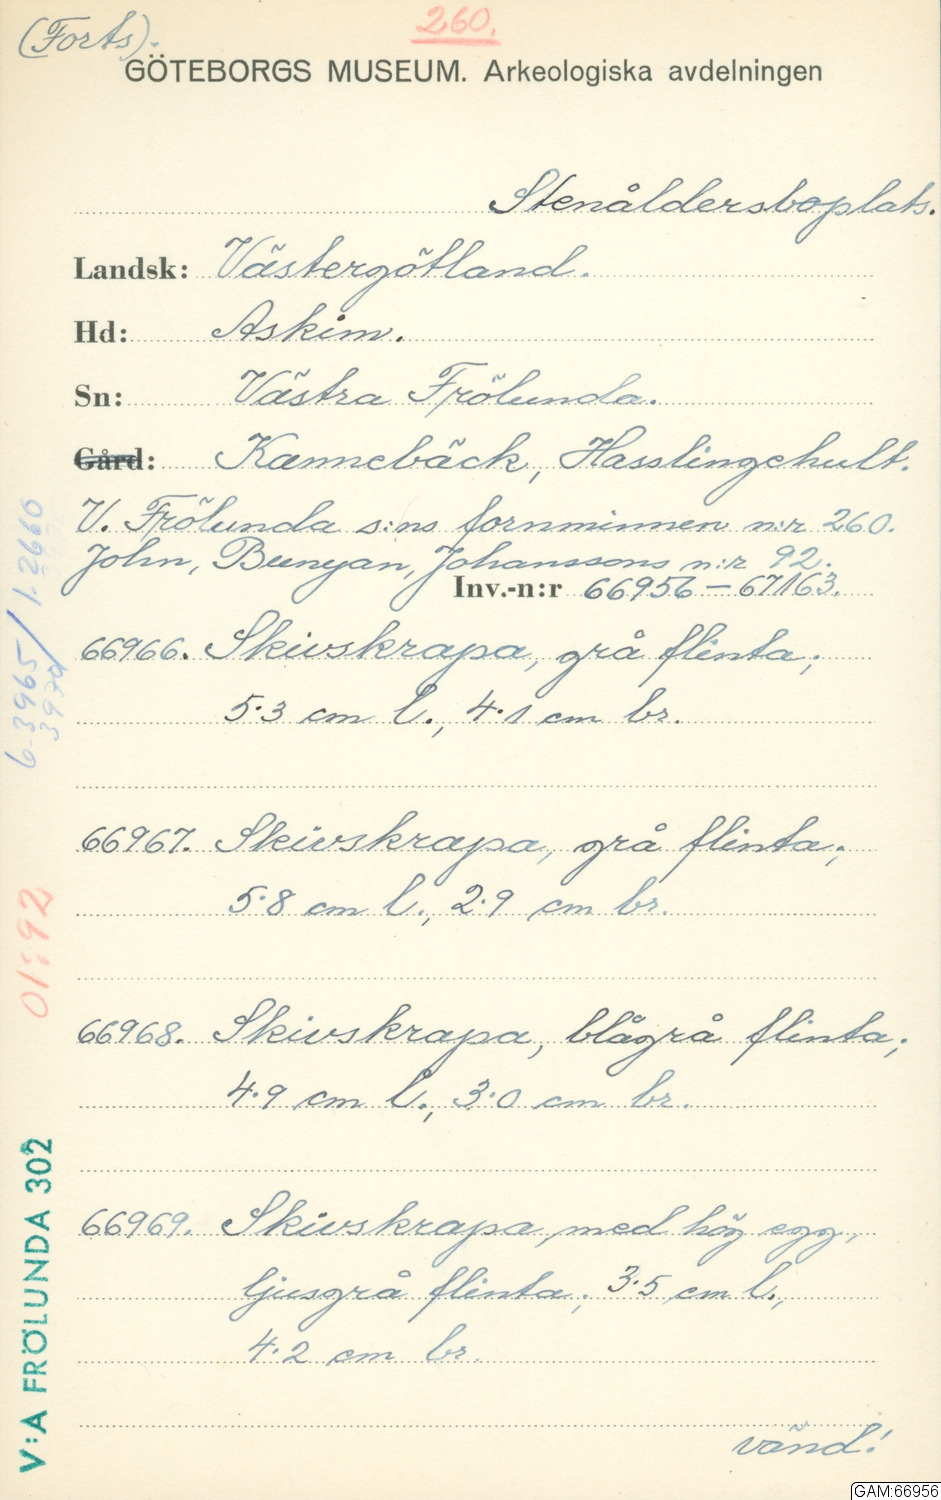 (Forts).
260.
GÖTEBORGS MUSEUM. Arkeologiska avdelningen
Stenåldersboplats.
Landsk: Västergötland.
Hd: Askim.
Sn: Västra Frölunda.
Gård: Kannebäck, Hasslingehult.
V. Frölunda s:ns fornminnen n:r 260.
John, Bunyan, Johanssons n:r 92.
Inv.-n:r 66956 – 67163.
66966. Skivskrapa, grå flinta;
5·3 cm l., 4·1 cm br.
66967. Skivskrapa, grå flinta;
5·8 cm l., 2·9 cm br.
66968. Skivskrapa, blågrå flinta;
4·9 cm l., 3·0 cm br.
66969. Skivskrapa, med hög egg,
ljusgrå flinta; 3·5 cm l.,
4·2 cm br.
vänd!
6-3965/1-2660
3970
01:92
V:A FRÖLUNDA 302
GAM:66956